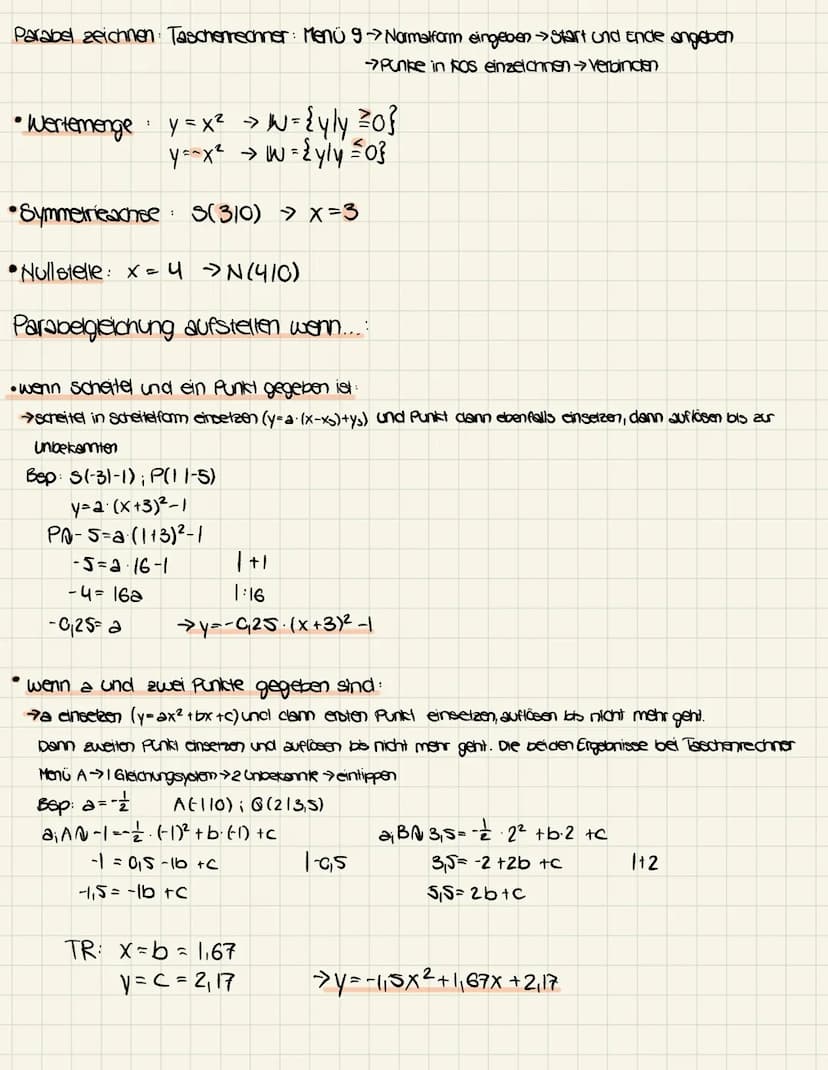 Parabel zeichnen: Taschenrechner: Menü 9 → Normalform eingeben → Start und Ende angeben
→ Punke in KOS einzeichnen → Verbinden
• Wertemenge : y = x² → W = {y|y ≧ 0}
y = -x² → W = {y|y ≦ 0}
• Symmetrieachse : S(3|0) → x = 3
• Nullstelle : x = 4 → N(4|0)
Parabelgleichung aufstellen wenn...:
• wenn Scheitel und ein Punkt gegeben ist:
→ Scheitel in Scheitelform einsetzen (y=a·(x-xs)+ys) und Punkt dann ebenfalls einsetzen, dann auflösen bis zur
unbekannten
Bsp: S(-3|-1) ; P(1|-5)
y=a·(x+3)²-1
P∩ -5=a·(1+3)²-1
-5=a·16-1 |+1
-4= 16a |:16
-0,25= a → y=-0,25·(x+3)²-1
• wenn a und zwei Punkte gegeben sind:
→ a einsetzen (y=ax²+bx+c) und dann ersten Punkt einsetzen, auflösen bis nicht mehr geht.
Dann zweiten Punkt einsetzen und auflösen bis nicht mehr geht. Die beiden Ergebnisse bei Taschenrechner
Menü A → 1 Gleichungsystem → 2 Unbekannte → eintippen
Bsp: a=-½ A(-1|0) ; B(2|3,5)
a; A∩ -1=-½·(-1)²+b·(-1)+c a; B∩ 3,5=-½·2²+b·2+c
-1 = 0,5 -1b +c |-0,5 3,5= -2 +2b +c |+2
-1,5 = -1b +c 5,5= 2b+c
TR: x=b = 1,67
y=c = 2,17 → y=-1,5x²+1,67x+2,17